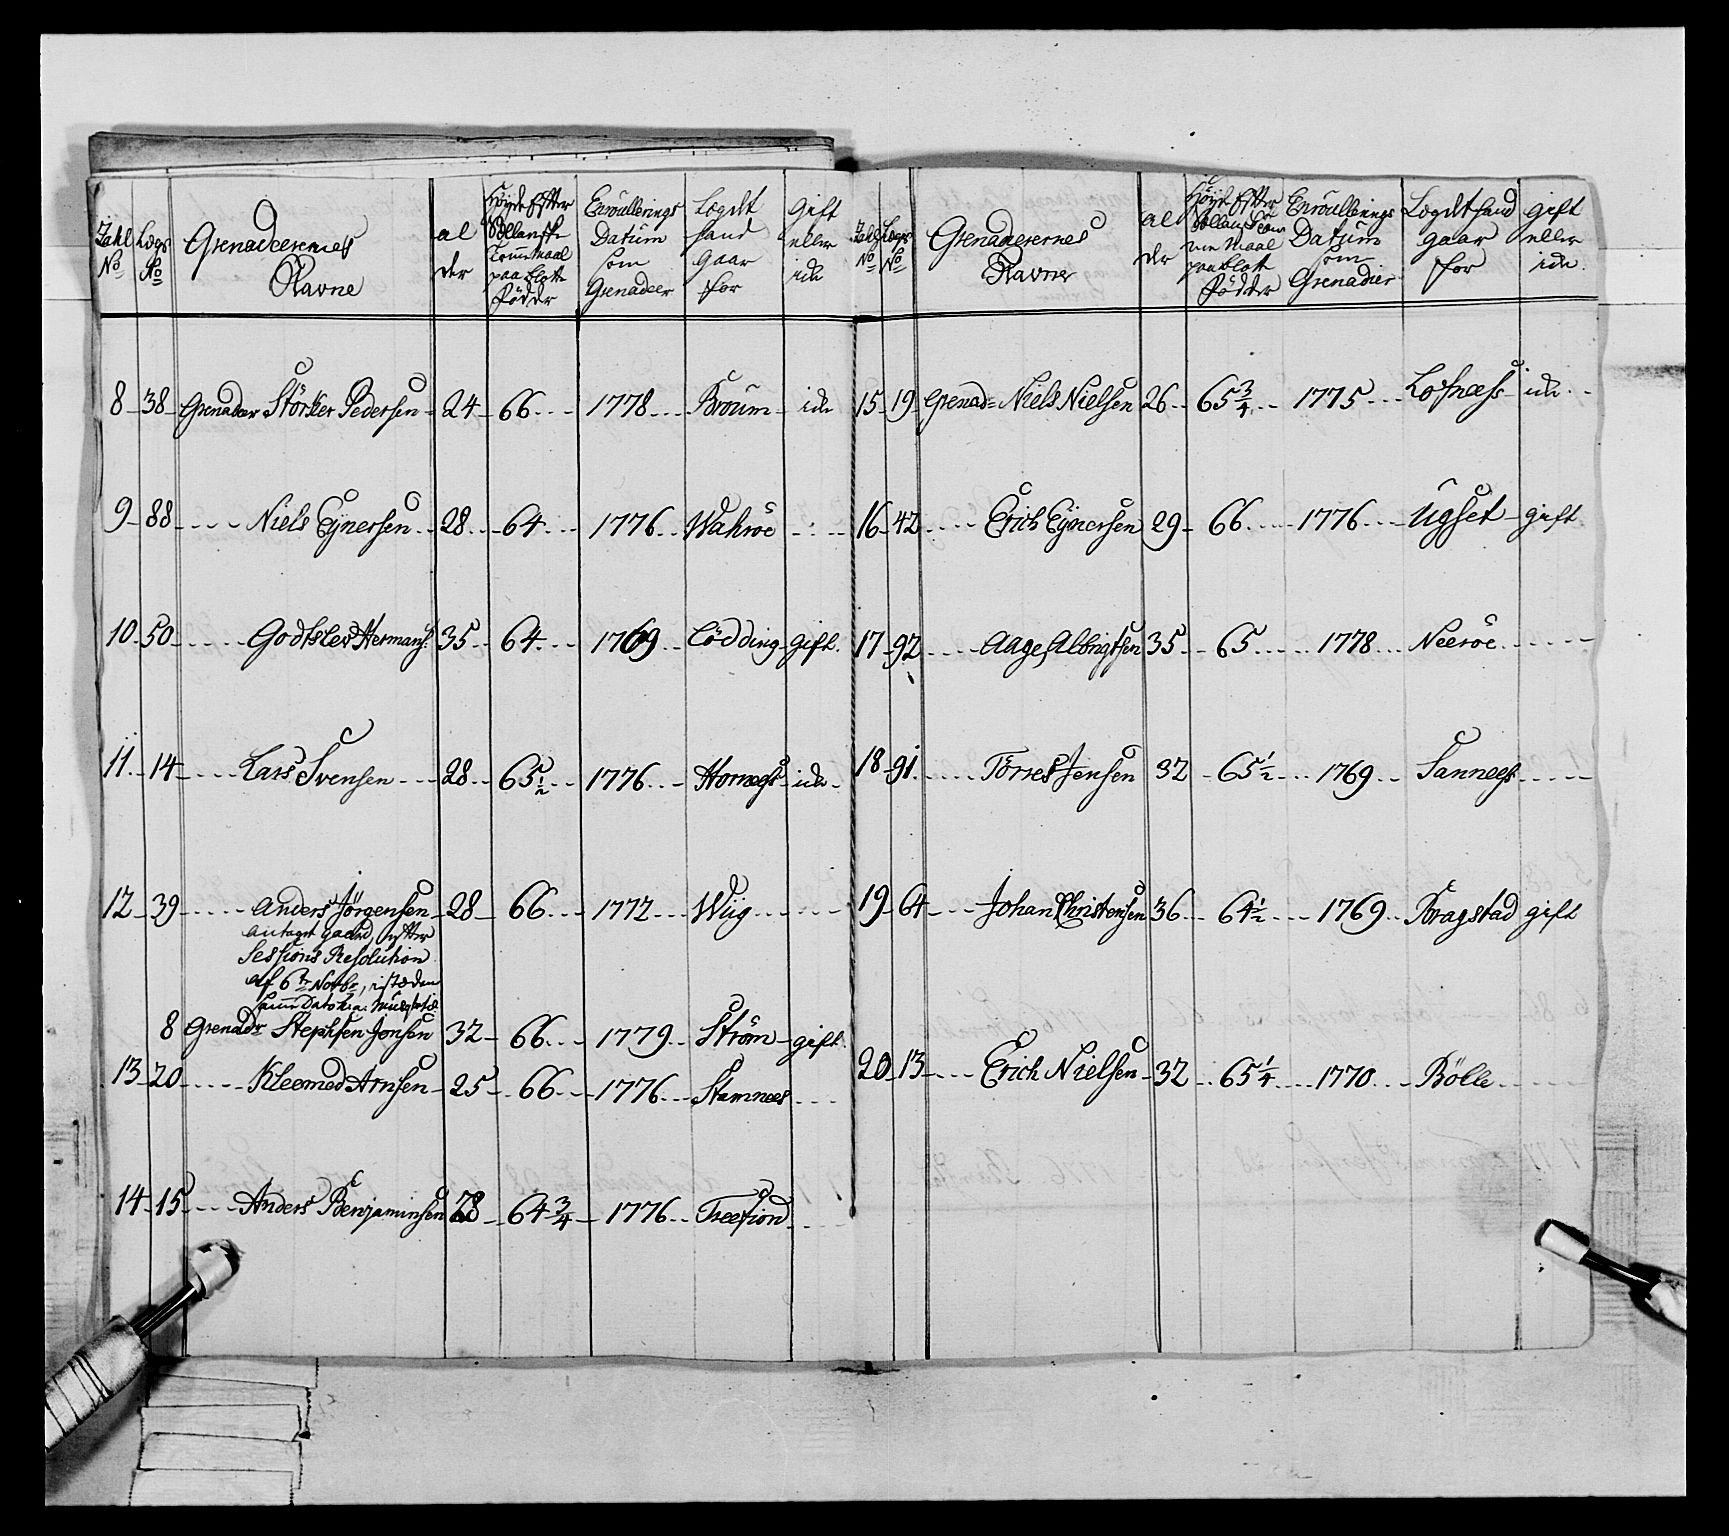 Tahl No
Lægs No
Grenadeerernes Navne
al der
Höyde efter Sællanske Tomme Maal paa blote Födder
Enroullerings Datum som Grenadeer
Logdt hand gaar for
Gift eller ide
8 38 Grenadeer Störker Pedersen 24 66 1778 Broum ide
9 88 Niels Eÿnersen 28 64 1776 Wahröe
10 50 Godtslev Hermans: 35 64 1769 Lödding gift
11 14 Lars Svensen 28 65½ 1776 Hornæss ide
12 39 Anders Jörgensen 28 66 1772 Wiig
antaget gaard, efter
Sessions Resolution
af 6te Novbr, istæden
8 Grenadr Stephsen Jonsen 32 66 1779 Ström gift
13 20 Kleemed Arnsen 25 66 1776 Stamnees
14 15 Anders Benjaminsen 28 64¾ 1776 Treefiord
Tahl No
Lægs No
Grenaderernes Navne
al der
Höyde efter Sollanske Tomme Maal paa blote Födder
Enroullerings Datum som Grenadier
Logdt hand gaar for
gift eller ide
15 19 Grenad= Niels Nielsen 26 65¾ 1775 Lofnæss ide
16 42 Erich Eÿnersen 29 66 1776 Ugset gift
17 92 Aage Albrigtsen 35 65 1778 Neeröe
18 91 Törres Jensen 32 65½ 1769 Sannees
19 64 Johan Christensen 36 64½ 1769 Kragstad gift
20 13 Erich Nielsen 32 65¼ 1770 Bölle